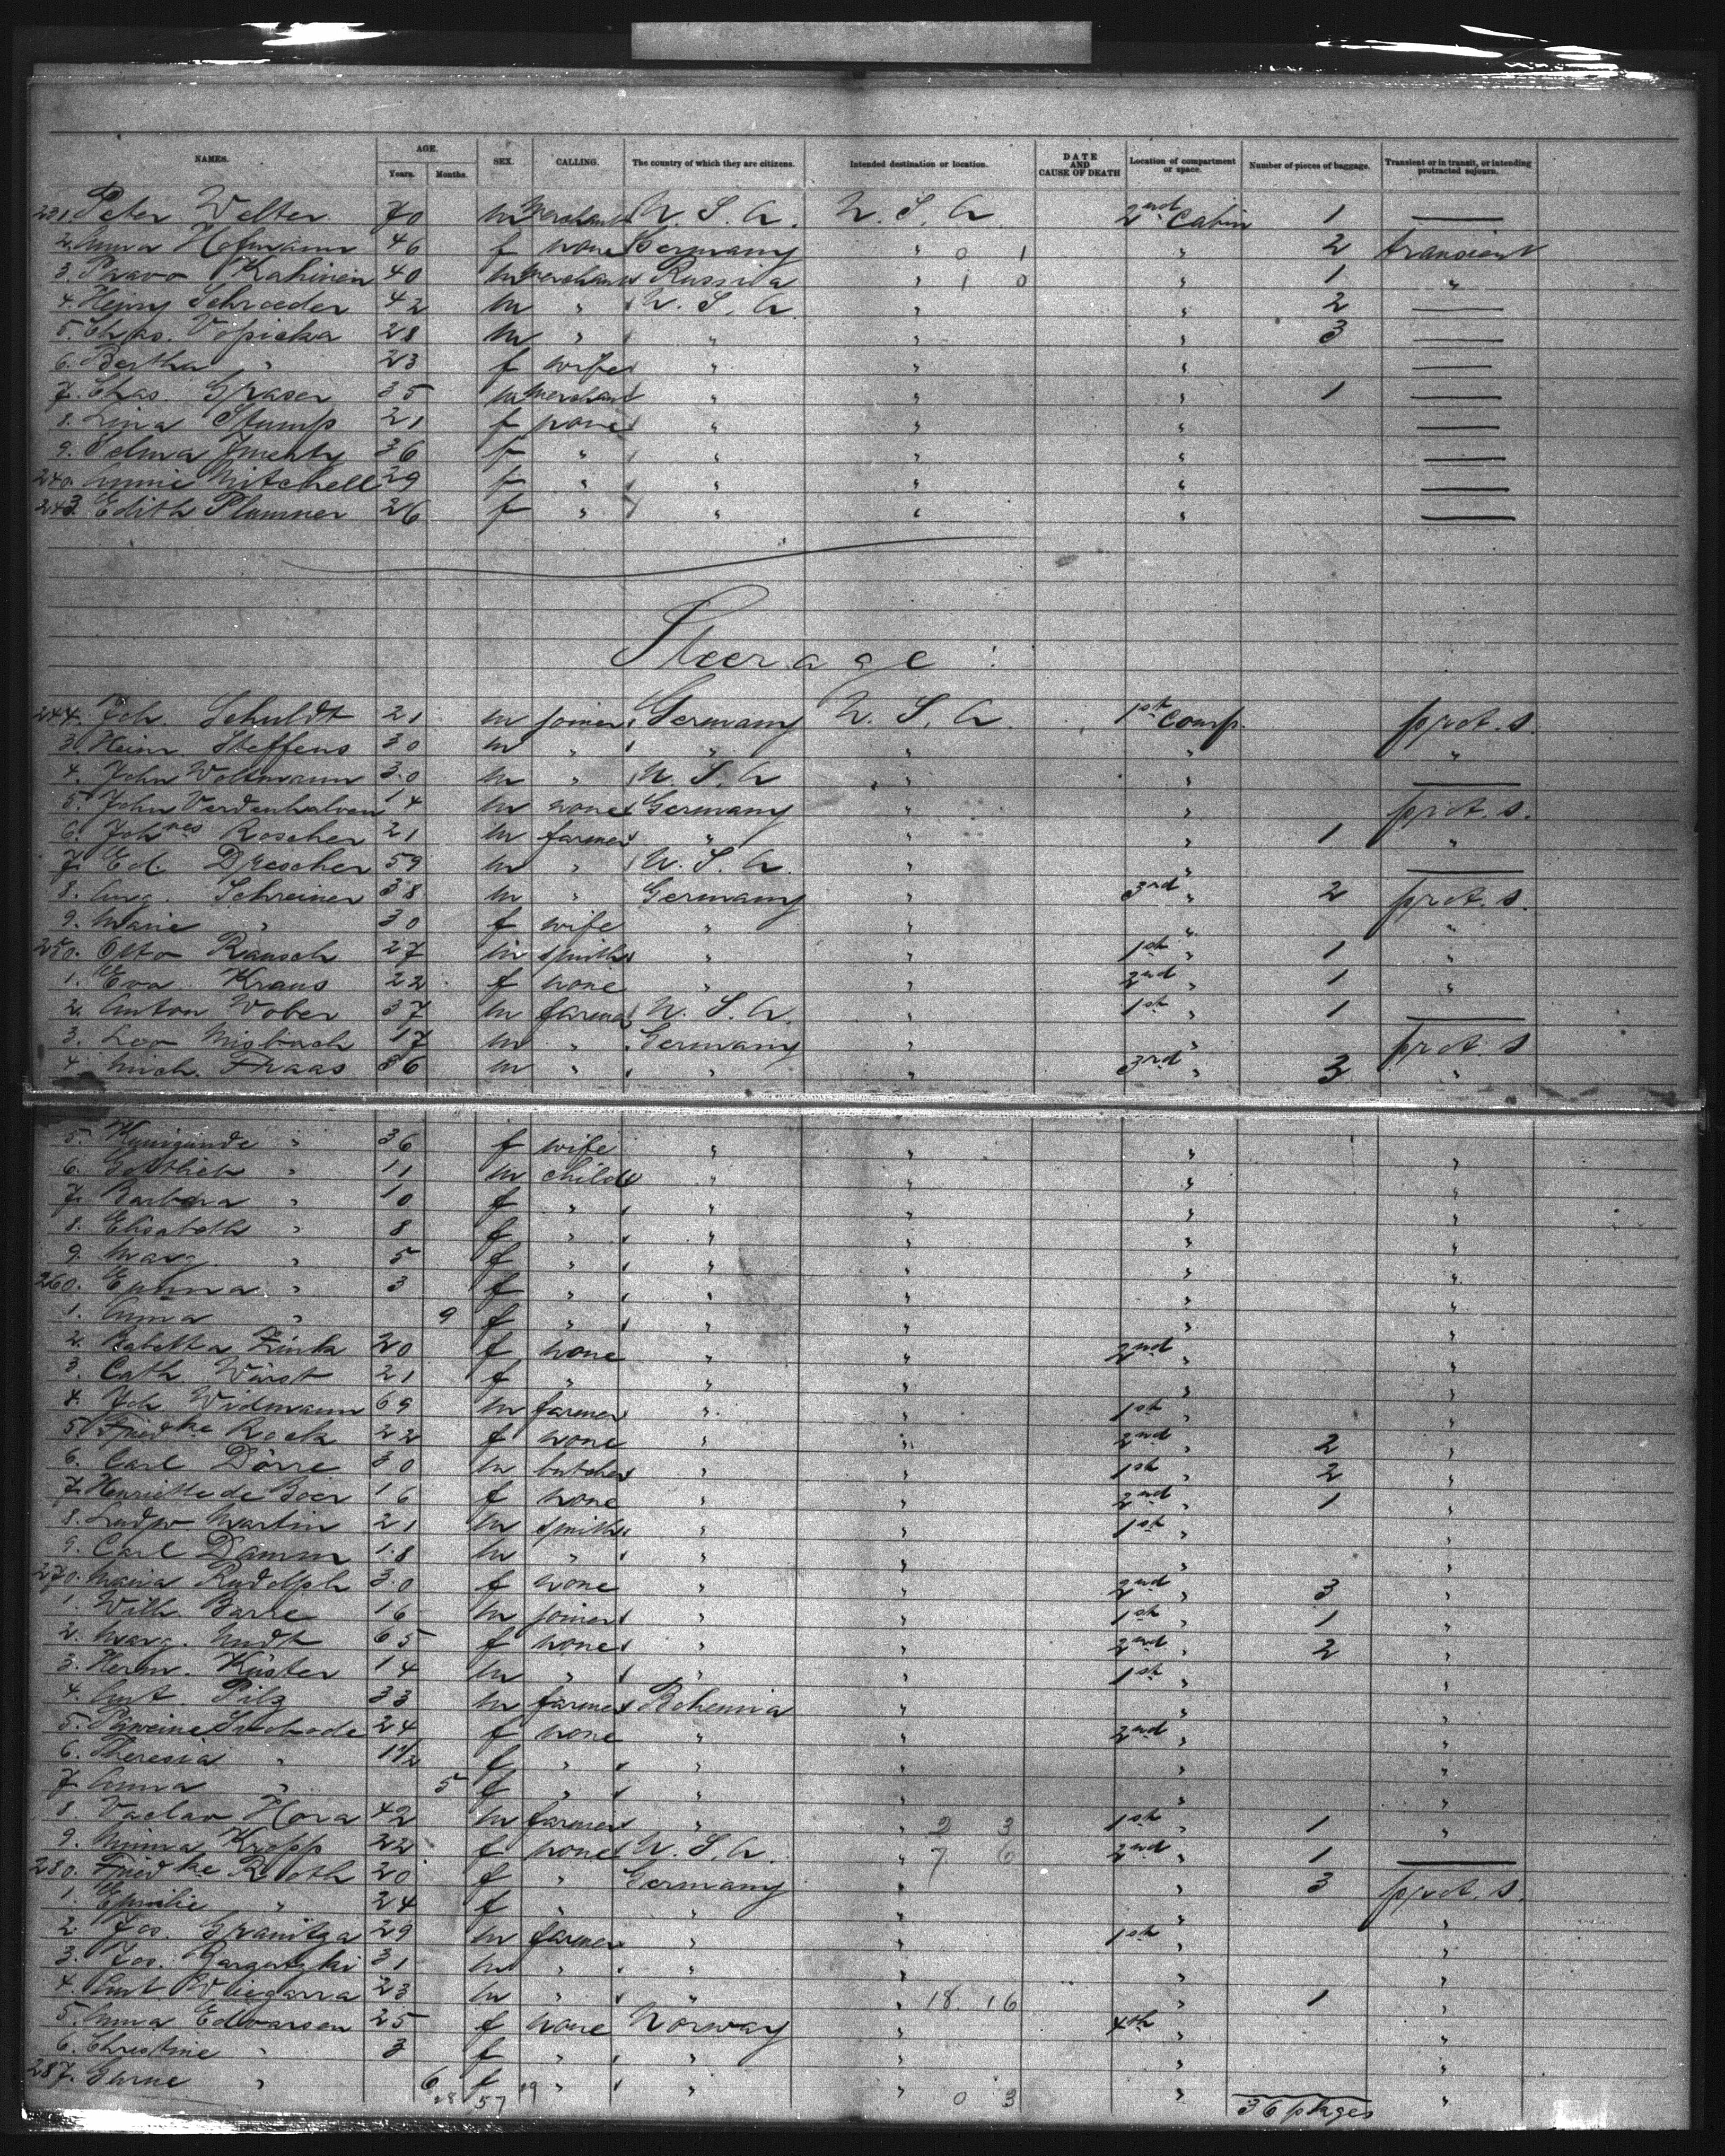 NAMES. AGE. Years. Months. SEX. CALLING. The country of which they are citizens. Intended destination or location. DATE AND CAUSE OF DEATH Location of compartment or space. Number of pieces of baggage. Transient or in transit, or intending protracted sojourn.
231. Peter Welter 70 m Merchant U. S. A. U. S. A 2nd Cabin 1 —
2. Anna Hofmann 46 f none Germany " 0 1 " 2 transient
3. Kahinen 40 m Merchant Russia " 1 0 " 1 "
4. Henry Schroeder 42 m " U. S. A " " 2 —
5. Chas. Vopicka 28 m " " " " 3 —
6. Bertha " 23 f wife " " " —
7. Chas. Graser 35 m Merchant " " " 1 —
8. Lina Stump 21 f none " " " —
9. Selma 36 f " " " " —
240. Annie Mitchell 29 f " " " " —
243. Edith Plumner 26 f " " " " —
Steerage :
244. Joh. Schuldt 21 m joiner Germany U. S. A. 1st comp. prot. s.
3. Heinr. Steffens 30 m " " " " "
4. John Woltmann 30 m " U. S. A " " —
5. John Verdenhalven 14 m none Germany " " prot. s.
6. Johnes Roscher 21 m farmer " " " 1 "
7. Ed. Drescher 59 m " U. S. A. " " —
8. Aug. Schreiner 38 m " Germany " 3rd " 2 prot. s.
9. Marie " 30 f wife " " " "
250. Otto Rausch 27 m smith " " 1st " 1 "
1. Eva Kraus 22 f none " " 2nd " 1 "
2. Anton Wober 37 m farmer U. S. A. " 1st " 1 —
3. Leo Misbach 17 m " Germany " " prot. s
4. Mich. Fraas 36 m " " " 3rd " 3 "
5. Kunigunde " 36 f wife " " " "
6. Gottlieb " 11 m child " " " "
7. Barbara " 10 f " " " " "
8. Elisabeth " 8 f " " " " "
9. Marg. " 5 f " " " " "
260. Emma " 3 f " " " " "
1. Anna " 9 f " " " " "
2. Babetta Zink 20 f none " " 2nd " "
3. Cath. Würst 21 f " " " " "
4. Joh. Widmann 69 m farmer " " 1st " "
5. Friedke Rock 22 f none " " 2nd " 2 "
6. Carl Dörre 30 m butcher " " 1st " 2 "
7. Henriette de Boer 16 f none " " 2nd " 1 "
8. Ludw. Martin 21 m smith " " 1st " "
9. Carl Damm 18 m " " " " "
270. Maria Rudolph 30 f none " " 2nd " 3 "
1. Wilh. Barre 16 m joiner " " 1st " 1 "
2. Marg. 65 f none " " 2nd " 2 "
3. Herm. Küster 14 m " " " 1st " "
4. Ant. Pilz 33 m farmer Bohemia " " "
5. 24 f none " " 2nd " "
6. Theresia " 1 1/2 f " " " " "
7. Anna " 5 f " " " " "
8. Vaclav Hora 42 m farmer " " 2 3 1st " 1 "
9. Minna Kropp 22 f none U. S. A. " 7 6 2nd " 1 —
280. Friedke Rooth 20 f " Germany " " 3 prot. s.
1. Emilie " 24 f " " " " "
2. Jos. Granitza 29 m farmer " " 1st " "
3. Jos. 31 m " " " " "
4. Ant. 23 m " " " 18 16 " 1 "
5. Anna Edvarsen 25 f none Norway " 4th " "
6. Christine " 3 f " " " " "
287. " 6 f " " " " "
28 57 19 0 3 36 pkages